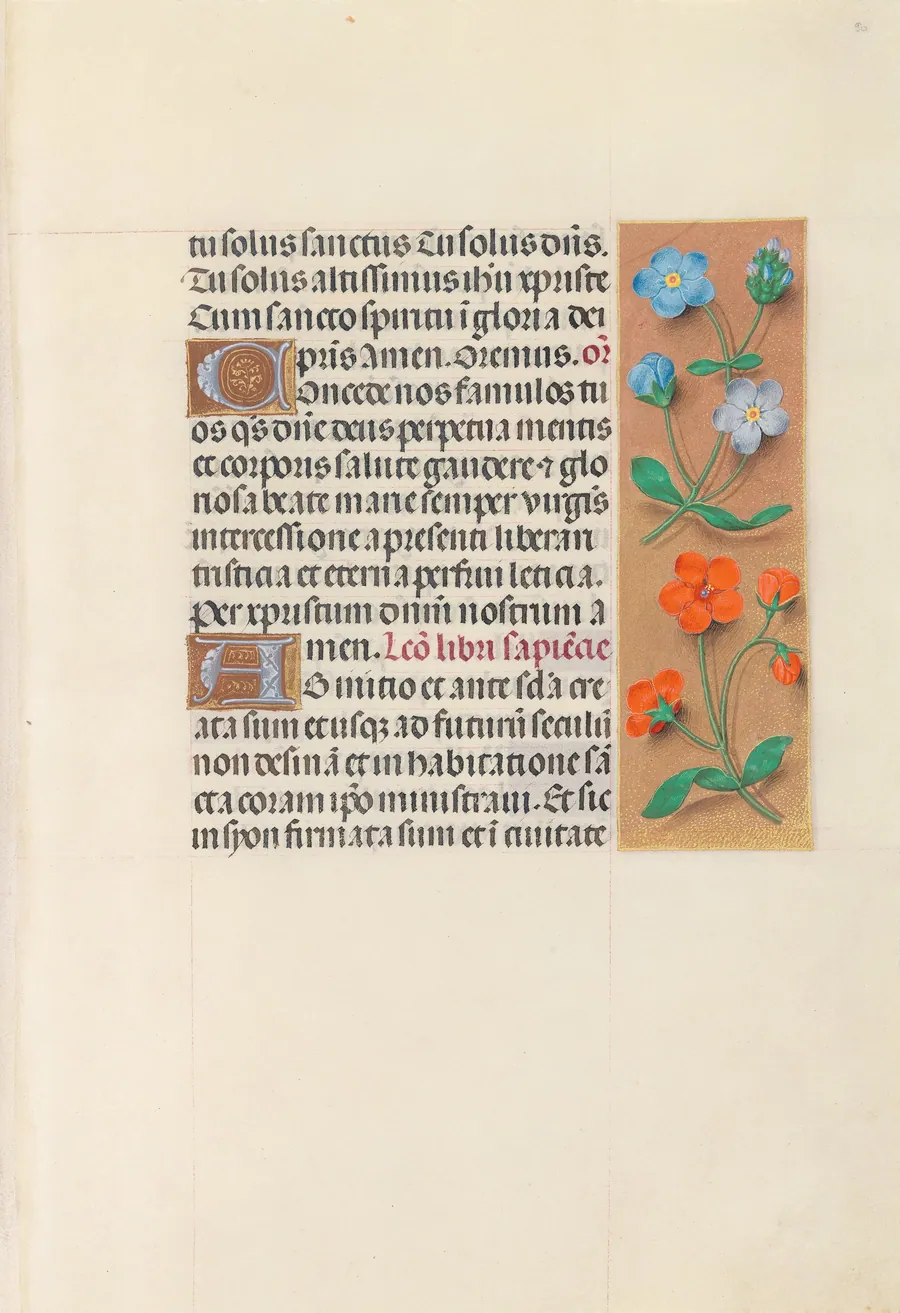 tu solus sanctus Tu solus dñs.
Tu solus altissimus ihũ xpriste
Cum sancto spiritu ĩ gloria dei
pr̃is Amen. Oremus. or̃
Concede nos famulos tu
os q̃s dñe deus perpetua mentis
et corporis salute gaudere ⁊ glo
riosa beate marie semper virgĩs
intercessione a presenti liberari
tristicia et eterna perfrui leticia.
Per xpristum dñm nostrum A
men. Lcõ libri sapiẽcie
AB initio et ante scl̃a cre
ata sum et usqꝫ ad futurũ seculũ
non desinã et in habitatione sã
cta coram ip̃o ministraui. Et sic
in syon firmata sum et ĩ ciuitate